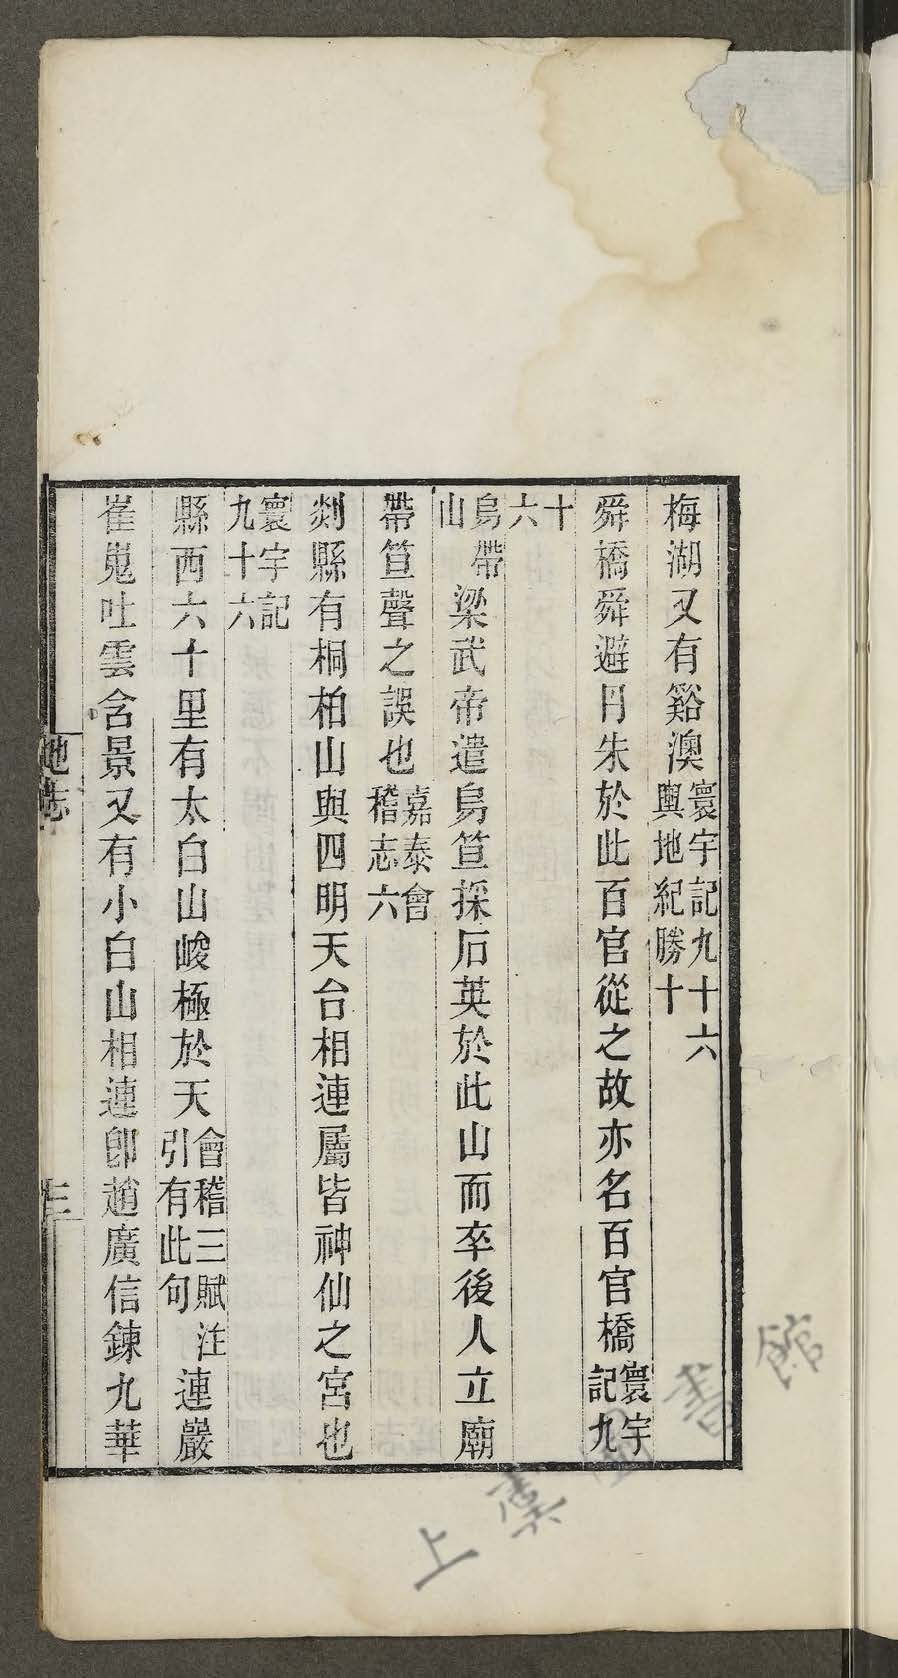 梅湖又有谿澳寰宇記九十六輿地紀勝十
舜橋舜避丹朱於此百官從之故亦名百官橋寰宇記九
十六
烏帶山梁武帝遣烏笪採石英於此山而卒後人立廟
帶笪聲之誤也嘉泰會稽志六
剡縣有桐柏山與四明天台相連屬皆神仙之宮也
寰宇記九十六
縣西六十里有太白山峻極於天會稽三賦注引有此句連巖
崔嵬吐雲含景又有小白山相連卽趙廣信鍊九華
地志
三
上虞圖書館